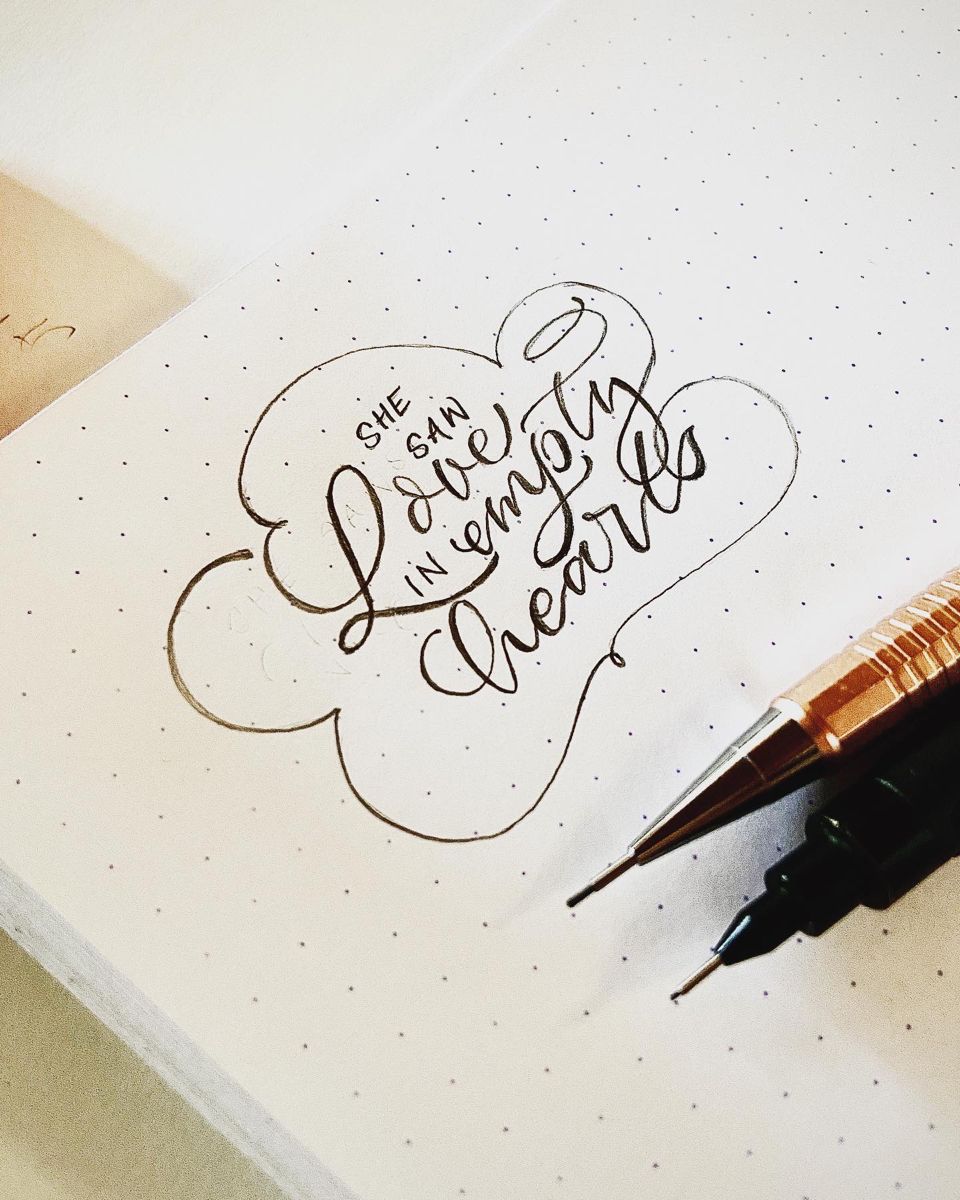 SHE
SAW
Love
IN empty
hearts